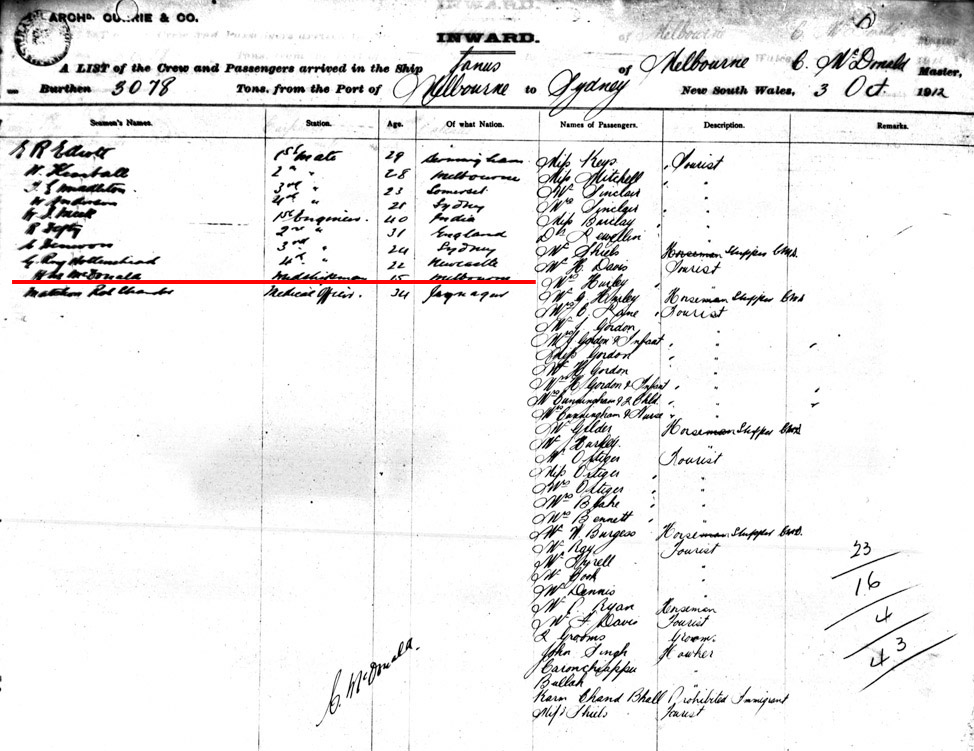 ARCHD. CURRIE & CO.
INWARD.
A LIST of the Crew and Passengers arrived in the Ship Janus of Melbourne C. McDonald Master,
Burthen 3078 Tons, from the Port of Melbourne to Sydney New South Wales, 3 Oct. 1912
Seamen's Names. Station. Age. Of what Nation. Names of Passengers. Description. Remarks.
1st Mate 29 Birmingham
W. Kimball 2nd " 28 Melbourne
3rd " 23 Somerset
W Anderson 4th " 28 Sydney
1st Engineer. 40 India
2nd " 31 England
3rd " 24 Sydney
G. Roy Hollinshead 4th " 22 Newcastle
Wm McDonald Midshipman 15 Melbourne
Medical Officer. 34
Miss Keys Tourist
Miss Mitchell "
Mr Sinclair "
Mrs Sinclair "
Miss Barclay "
Dr Lewellin "
Mr Shiels Horseman Shipper
Mr H. Davis Tourist
Mr Hurley
Mr G. Hurley Horseman Shipper
Tourist
Mr J. Gordon "
Mrs J Gordon & Infant "
Miss Gordon "
Mr H Gordon "
Mrs H Gordon & Infant "
Mrs Cunningham & 2 Chld. "
Mrs Cunningham & Nurse "
Mr Gilder Horseman Shipper
Mr J Hurley. "
Mr Ortiger Tourist
Miss Ortiger "
Mrs Ortiger "
Mrs Blake "
Mrs Bennett "
Mr W Burgess Horseman Shipper
Mr Ray Tourist
Mr Tyrell "
Mr Cook "
Mr Dennis "
Mr P. Ryan Horseman
Mr F Davis Tourist
2 Grooms Groom.
John Singh Hawker
Bullah
Karm Chand Bhall Prohibited Immigrant
Miss Shiels Tourist
23
16
4
43
C. McDonald.